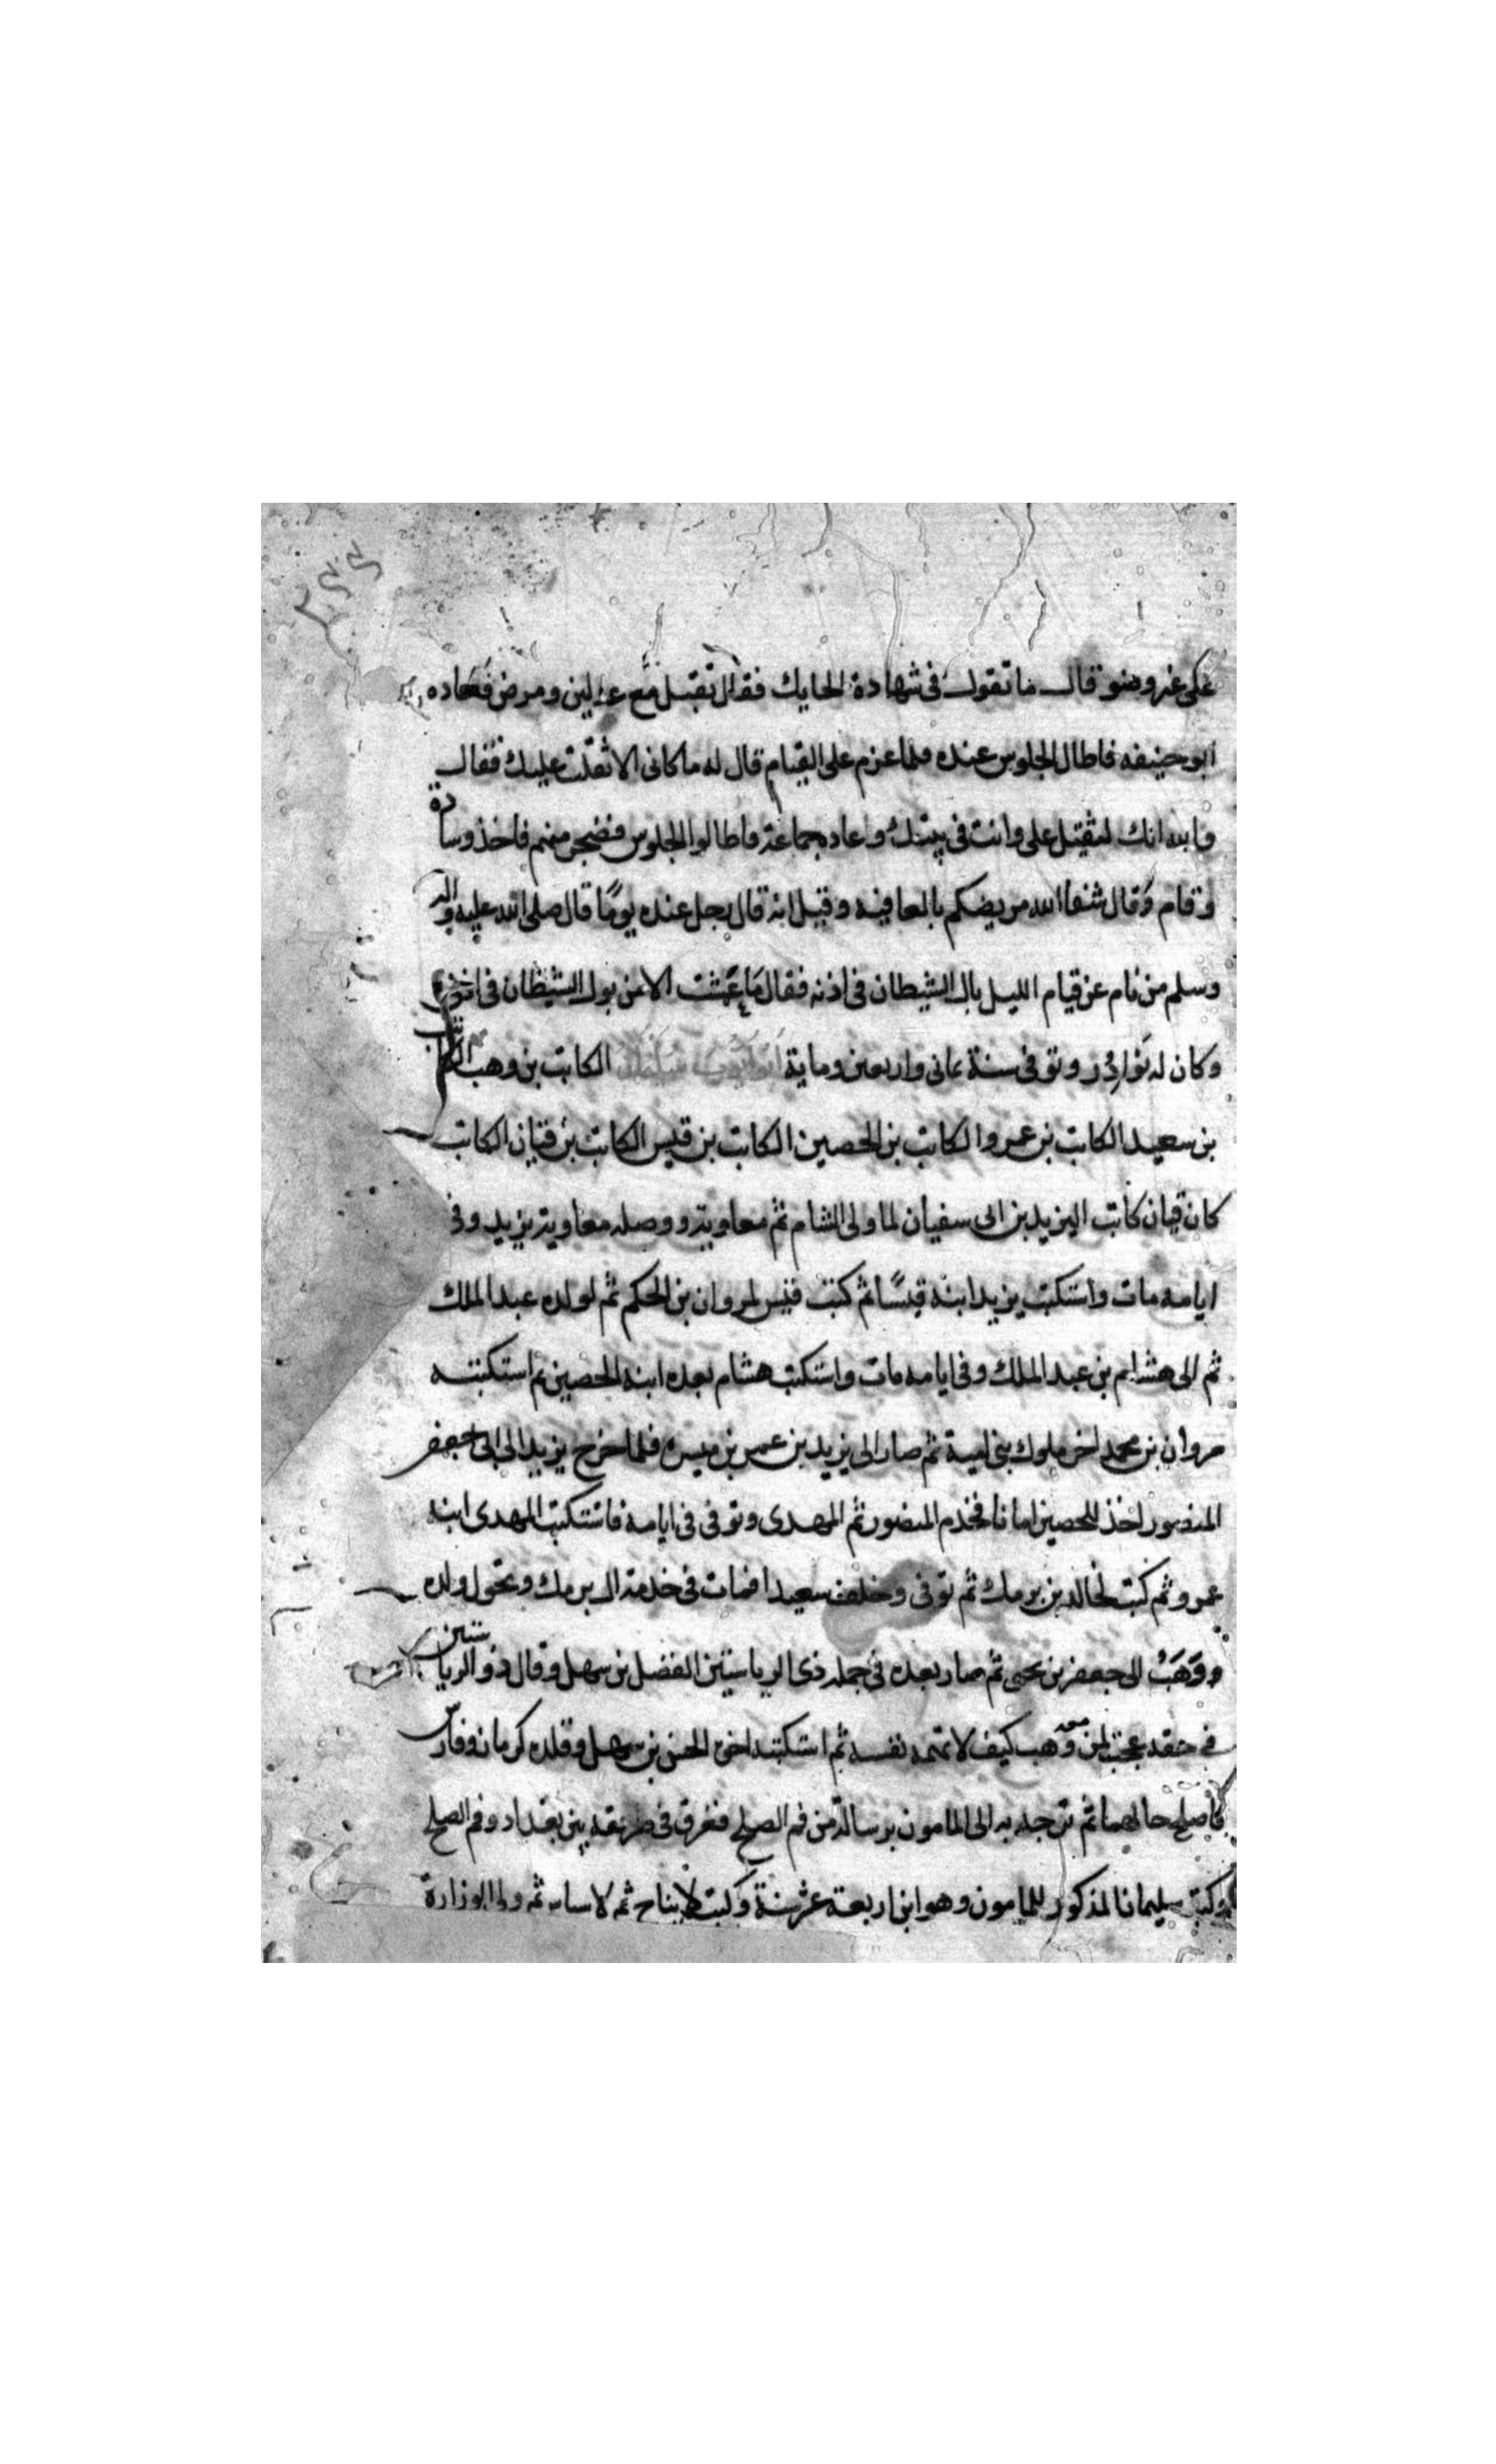 ٢٤٤
على غير وضو قال ما تقول فى شهادة الحايك فقال تقبل مع عدلين ومرض فعاده
ابو حنيفه فاطال الجلوس عنده فلما عزم على القيام قال له ما كانى الا ثقلت عليك فقال
والله انك لتثقيل على وانت فى بيتك وعاده جماعة فاطالوا الجلوس فضجر منهم فاخذ وسادة
وقام وقال شفا الله مريضكم بالعافيه وقيل انه قال رجل عنده يومًا قال صلى الله عليه واله
وسلم من نام عن قيام الليل بال الشيطان فى اذنه فقال ما عمشت الا من بول الشيطان فى
وكان له نوادر وتوفى سنة ثمانى واربعين وماية ابو ايوب سليمان الكاتب بن وهب الكاتب
بن سعيد الكاتب بن عمرو الكاتب بن الحصين الكاتب بن قيس الكاتب بن قنان الكاتب
كان قنان كاتب اليزيد بن ابى سفيان لما ولى الشام ثم معاوية ووصله معاوية يزيد وفى
ايامه مات واستكتب يزيد ابنه قيسًا ثم كتب قيس لمروان بن الحكم ثم لولده عبد الملك
ثم الى هشام بن عبد الملك وفى ايامه مات واستكتب هشام بعده ابنه الحصين ثم استكتبه
مروان بن محمد اخر ملوك بنى امية ثم صار الى يزيد بن عمر بن هبيره فلما خرج يزيد الى ابى جعفر
المنصور اخذ للحصين امانا فخدم المنصور ثم المهدى وتوفى فى ايامه فاستكتب المهدى ابنه
عمرو ثم كتب لخالد بن برمك ثم توفى وخلف سعيدا فمات فى خدمة ال برمك وتحول ولده
ووهب الى جعفر بن يحيى ثم صار بعده فى جمله ذى الرياستين الفضل بن سهل وقال ذو الرياستين
فى حقه عجبت لمن معه وهب كيف لا تهمه نفسه ثم استكتبه اخى الحسن بن سهل وقلده كرمان وفارس
فاصلح حالهما ثم توجه به الى المامون برسالة من فم الصلح فغرق فى طريقه بين بغداد وفم الصلح
وكتب سليمانا لمذكور للمامون وهو ابن اربعة عشر سنة وكتب لايتاح ثم لاساس ثم ولى الوزارة